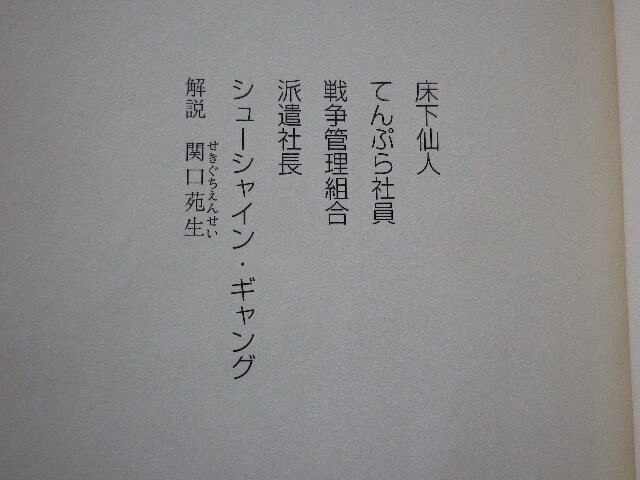 床下仙人
てんぷら社員
戦争管理組合
派遣社長
シューシャイン・ギャング
解説 関口苑生
せきぐちえんせい